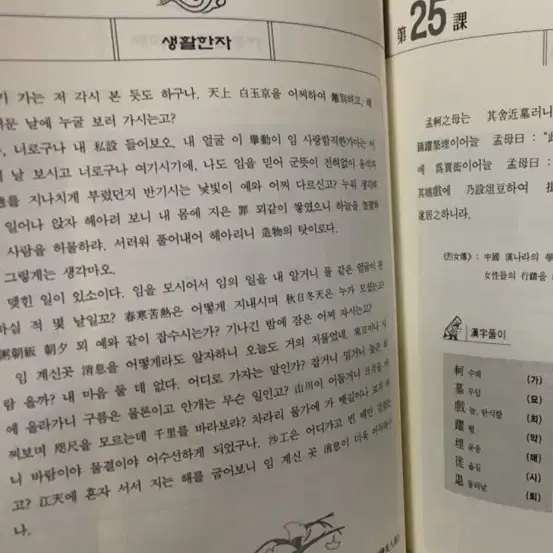 생활한자
가는 저 각시 본 듯도 하구나. 天上 白玉京을 어찌하여 離別하고, 해
날에 누굴 보러 가시는고?
너로구나 내 私設 들어보오. 내 얼굴 이 擧動이 임 사랑함직한가마는
날 보시고 너로구나 여기시기에, 나도 임을 믿어 군뜻이 전혀없어
지나치게 부렸던지 반기시는 낯빛이 예와 어찌 다르신고? 누워 생각하
일어나 앉자 헤아려 보니 내 몸에 지은 罪 뫼같이 쌓였으니 하늘을
사람을 허물하랴. 서러워 풀어내어 헤아리니 造物의 탓이로다.
그렇게는 생각마오.
맺힌 일이 있소이다. 임을 모시어서 임의 일을 내 알거니 물 같은 얼굴이
적 몇 날일꼬? 春寒苦熱은 어떻게 지내시며 秋日冬天은 누가 모셨는고
粥朝飯 朝夕 뫼 예와 같이 잡수시는가? 기나긴 밤에 잠은 어찌 자시는고?
임 계신곳 消息을 어떻게라도 알자하니 오늘도 거의 저물었네.
올까? 내 마음 둘 데 없다. 어디로 가자는 말인가? 잡거니 밀거니 높은
에 올라가니 구름은 물론이고 안개는 무슨 일인고? 山川이 어둡거니
찌보며 咫尺을 모르는데 千里를 바라보랴? 차라리 물가에 가 뱃길이나
니 바람이야 물결이야 어수선하게 되었구나. 沙工은 어디가고 빈 배만
고? 江天에 혼자 서서 지는 해를 굽어보니 임 계신 곳 消息이 더욱
나.
第25課
孟軻之母는 其舍近墓러니
踊躍築埋이어늘 孟母曰 :
에 爲賈衒이어늘 孟母曰 :
其嬉戲에 乃設俎豆하여
遂居之하니라.
《烈女傳》: 中國 漢나라의
女性들의 行錄을
漢字풀이
軻 수레 (가)
墓 무덤 (묘)
戲 놀, 탄식할 (희)
躍 뛸 (약)
埋 묻을 (매)
徙 옮길 (사)
退 물러날 (퇴)